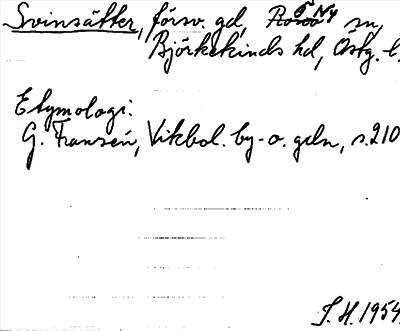 Svinsätter, försv. gd, Ö Ny sn,
Björkekinds hd, Östg. l.
Etymologi:
G. Franzén, Vikbol. by- o. gdn, s. 210
S.H. 1954.